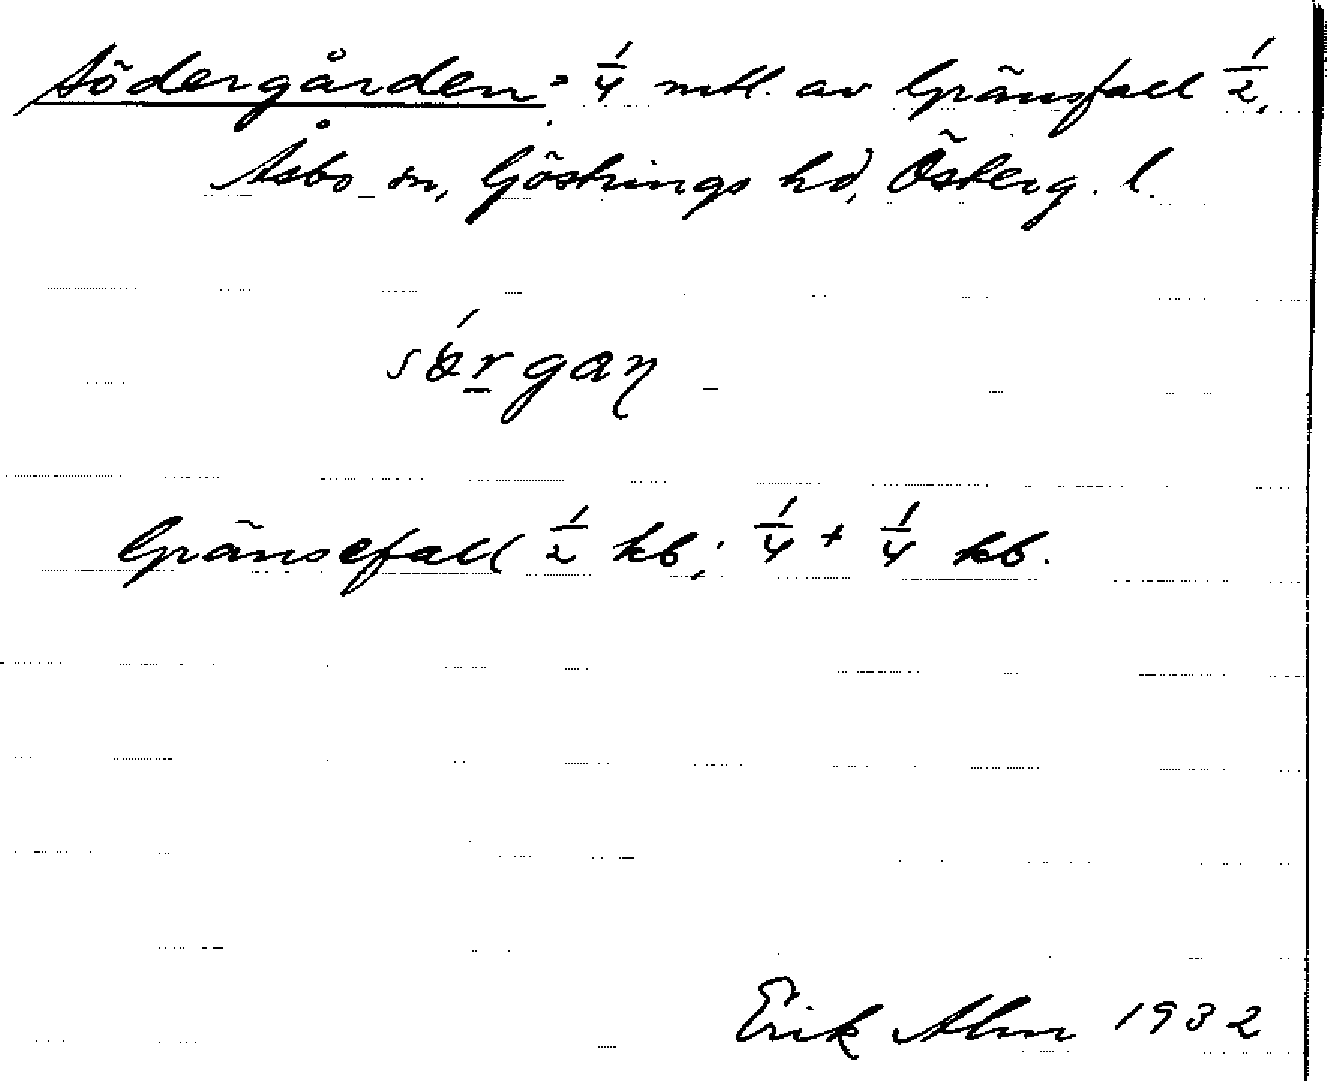 Södergården: 1/4 mtl. av Gränsfall 1/2,
Åsbo sn, Göstrings hd, Österg. l.
Gränsefall 1/2 kb; 1/4 + 1/4 kb.
Erik Alm 1932